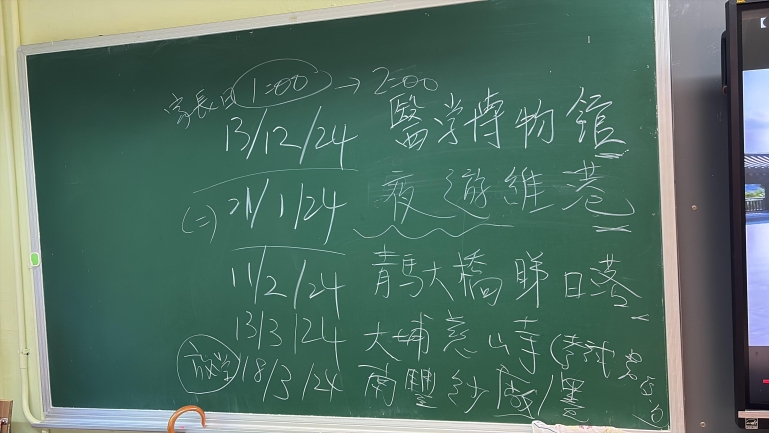 家長日 1:00 → 2:00
13/12/24 醫学博物館
(二) 21/1/24 夜遊維港
11/2/24 青馬大橋睇日落
13/3/24 大埔慈山寺
放学 18/3/24 南豐紗廠/